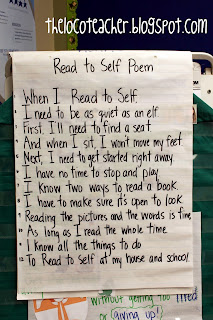 thelocoteacher.blogspot.com
Read to Self Poem
When I Read to Self.
I need to be as quiet as an elf.
First, I'll need to find a seat
And when I sit, I won't move my feet.
Next, I need to get started right away.
I have no time to stop and play.
I know two ways to read a book.
I have to make sure it's open to look.
Reading the pictures and the words is fine
As long as I read the whole time.
I know all the things to do
To Read to Self at my house and school
without getting too tired
or (giving up!)